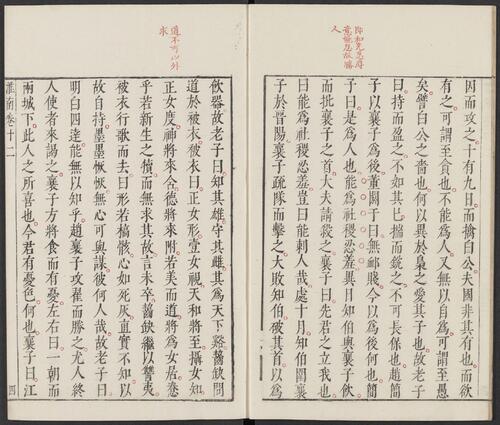 即和光忍辱
意能忍故勝
人
因而攻之十有九日而擒白公夫國非其有也而欲
有之可謂至貪也不能爲人又無以自爲可謂至愚
矣譬白公之嗇也何以異於梟之愛其子也故老子
曰持而盈之不如其已揣而銳之不可長保也趙簡
子以襄子爲後董閼于曰無卹賤今以爲後何也簡
子曰是爲人也能爲社稷忍羞異日知伯與襄子飲
而批襄子之首大夫請殺之襄子曰先君之立我也
曰能爲社稷忍羞豈曰能刺人哉處十月知伯圍襄
子於晉陽襄子疏隊而擊之大敗知伯破其首以爲
道不可以外
求
飲器故老子曰知其雄守其雌其爲天下谿齧缺問
道於被衣被衣曰正女形壹女視天和將至攝女知
正女度神將來合德將來附若美而道將爲女居惷
乎若新生之犢而無求其故言未卒齧缺繼以讐夷
被衣行歌而去曰形若槁骸心如死灰直實不知以
故自持墨墨恢恢無心可與謀彼何人哉故老子曰
明白四達能無以知乎趙襄子攻翟而勝之尤人終
人使者來謁之襄子方將食而有憂左右曰一朝而
兩城下此人之所喜也今君有憂色何也襄子曰江
淮南卷十二 四